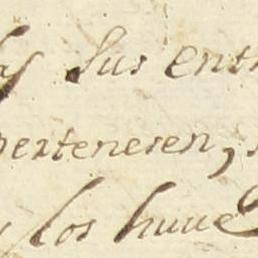 sus entr
pertenesen, s
y los huue